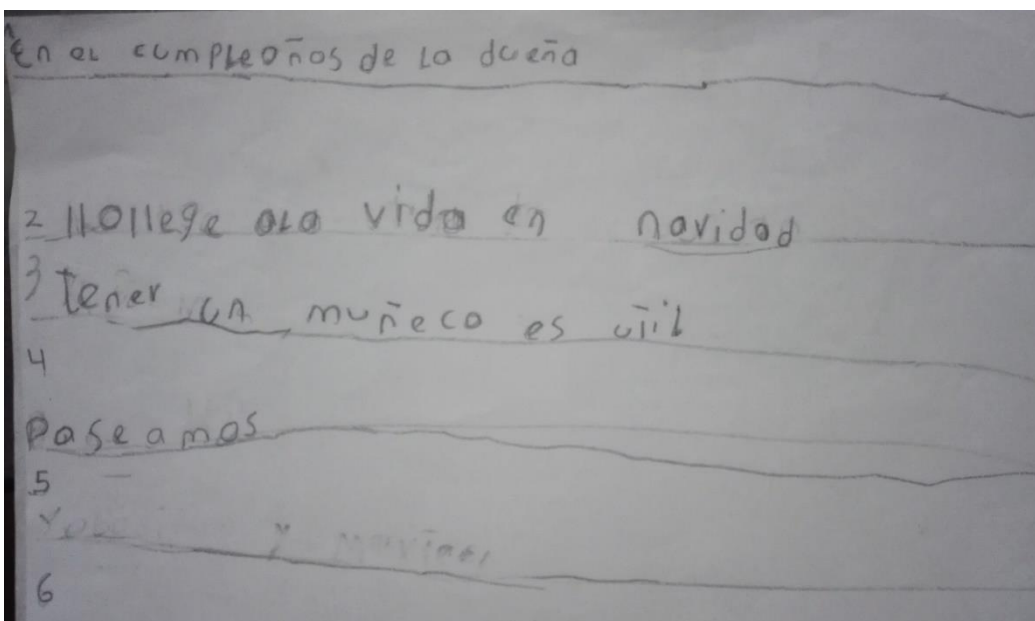 En el cumpleaños de la dueña
2 llollege ala vida en navidad
3 tener un muñeco es útil
4
Paseamos
5
y
6